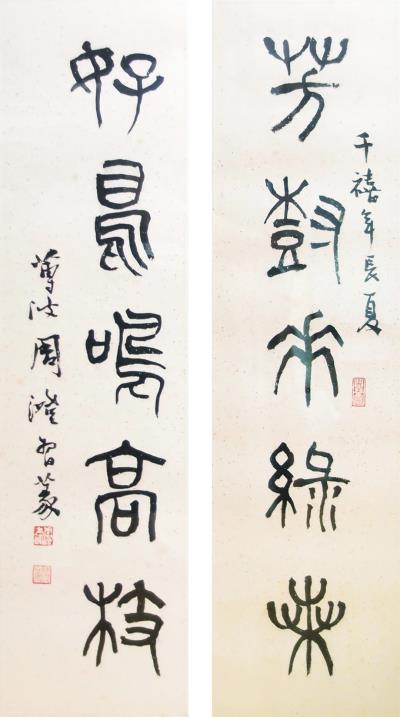 千禧年長夏
芳樹垂綠葉
好鳥鳴高枝
蓴波周澄習篆